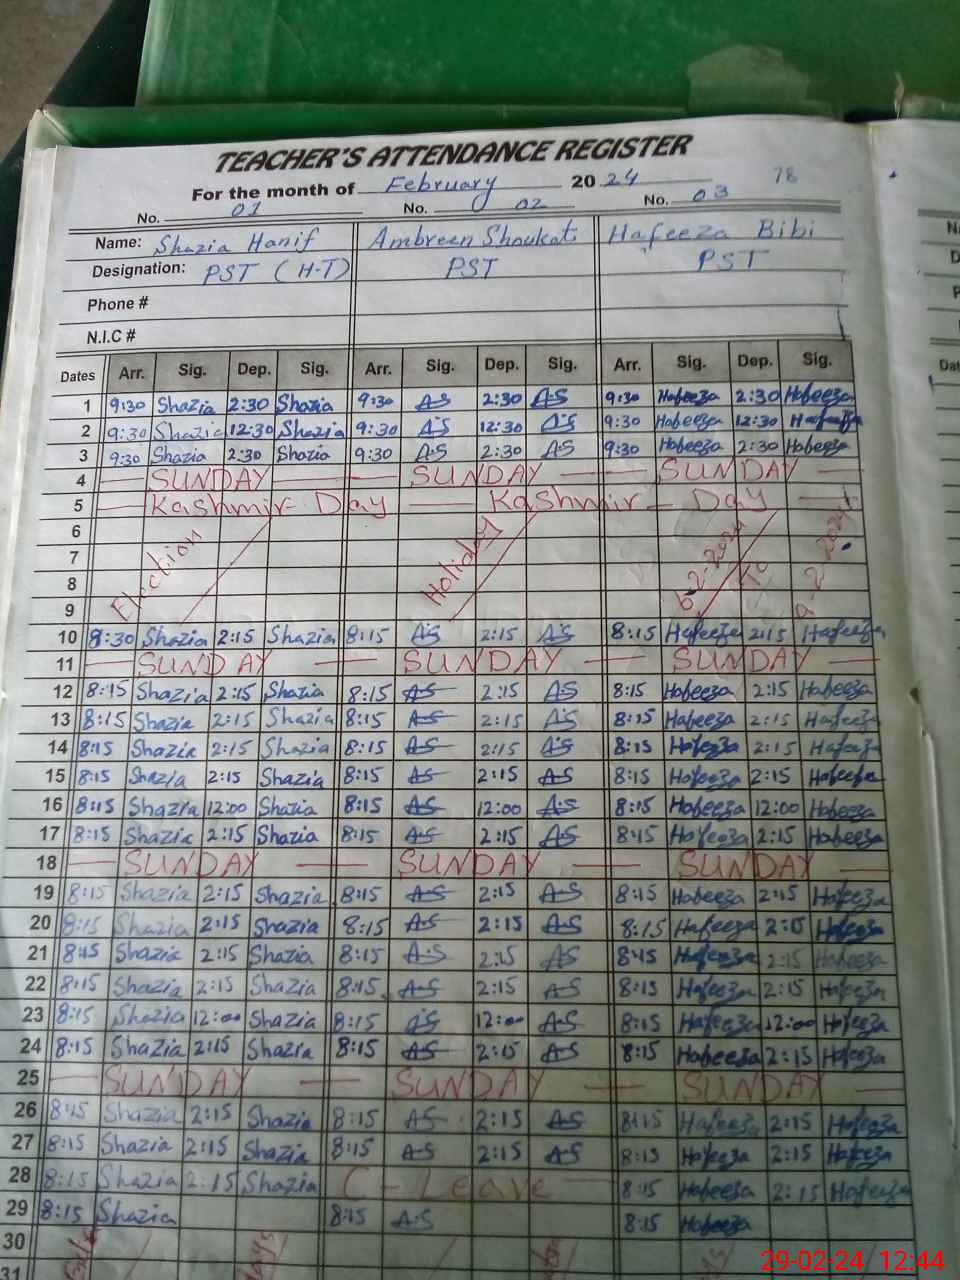 TEACHER'S ATTENDANCE REGISTER
For the month of February 2024 78
No. 01 No. 02 No. 03
Name: Shazia Hanif Ambreen Shoukat Hafeeza Bibi
Designation: PST (H-T) PST PST
Phone #
N.I.C #
Dates Arr. Sig. Dep. Sig. Arr. Sig. Dep. Sig. Arr. Sig. Dep. Sig.
1 9:30 Shazia 2:30 Shazia 9:30 AS 2:30 AS 9:30 Hafeeza 2:30 Hafeeza
2 9:30 Shazia 12:30 Shazia 9:30 AS 12:30 AS 9:30 Hafeeza 12:30 Hafeeza
3 9:30 Shazia 2:30 Shazia 9:30 AS 2:30 AS 9:30 Hafeeza 2:30 Hafeeza
4 SUNDAY SUNDAY SUNDAY
5 Kashmir Day Kashmir Day
6
7 Election Holiday 6-2-2024 To 9-2-2024
8
9
10 8:30 Shazia 2:15 Shazia 8:15 AS 2:15 AS 8:15 Hafeeza 2:15 Hafeeza
11 SUNDAY SUNDAY SUNDAY
12 8:15 Shazia 2:15 Shazia 8:15 AS 2:15 AS 8:15 Hafeeza 2:15 Hafeeza
13 8:15 Shazia 2:15 Shazia 8:15 AS 2:15 AS 8:15 Hafeeza 2:15 Hafeeza
14 8:15 Shazia 2:15 Shazia 8:15 AS 2:15 AS 8:15 Hafeeza 2:15 Hafeeza
15 8:15 Shazia 2:15 Shazia 8:15 AS 2:15 AS 8:15 Hafeeza 2:15 Hafeeza
16 8:15 Shazia 12:00 Shazia 8:15 AS 12:00 AS 8:15 Hafeeza 12:00 Hafeeza
17 8:15 Shazia 2:15 Shazia 8:15 AS 2:15 AS 8:15 Hafeeza 2:15 Hafeeza
18 SUNDAY SUNDAY SUNDAY
19 8:15 Shazia 2:15 Shazia 8:15 AS 2:15 AS 8:15 Hafeeza 2:15 Hafeeza
20 8:15 Shazia 2:15 Shazia 8:15 AS 2:15 AS 8:15 Hafeeza 2:15 Hafeeza
21 8:15 Shazia 2:15 Shazia 8:15 A.S 2:15 AS 8:15 Hafeeza 2:15 Hafeeza
22 8:15 Shazia 2:15 Shazia 8:15 AS 2:15 AS 8:15 Hafeeza 2:15 Hafeeza
23 8:15 Shazia 12:00 Shazia 8:15 AS 12:00 AS 8:15 Hafeeza 12:00 Hafeeza
24 8:15 Shazia 2:15 Shazia 8:15 AS 2:15 AS 8:15 Hafeeza 2:15 Hafeeza
25 SUNDAY SUNDAY SUNDAY
26 8:15 Shazia 2:15 Shazia 8:15 AS 2:15 AS 8:15 Hafeeza 2:15 Hafeeza
27 8:15 Shazia 2:15 Shazia 8:15 AS 2:15 AS 8:15 Hafeeza 2:15 Hafeeza
28 8:15 Shazia 2:15 Shazia C - Leave 8:15 Hafeeza 2:15 Hafeeza
29 8:15 Shazia 8:15 A.S 8:15 Hafeeza
30
31
29-02-24 12:44